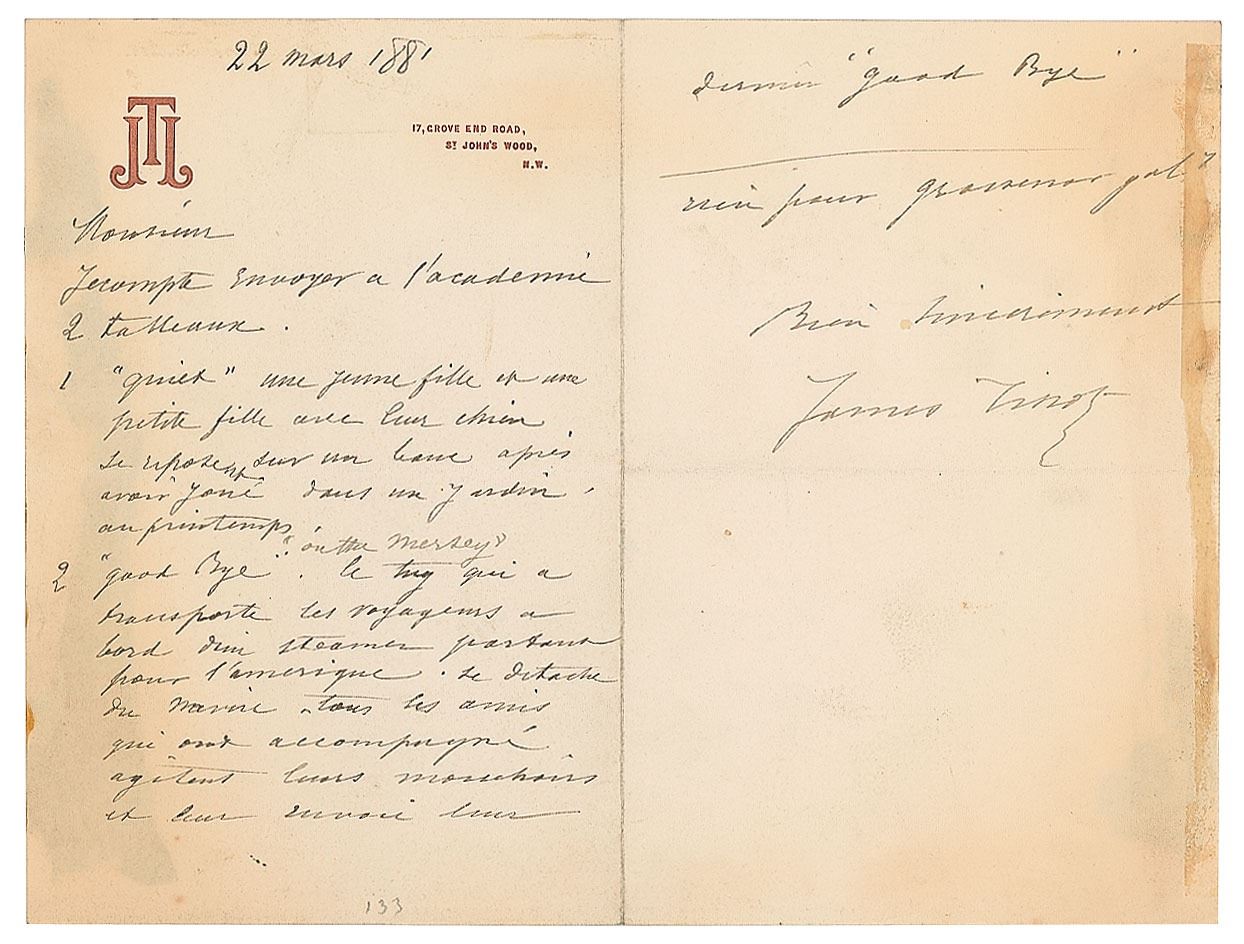 22 mars 1881
JTJ
17, GROVE END ROAD,
ST JOHN'S WOOD,
N.W.
Monsieur
Je compte envoyer a l'academie
2 tableaux.
1 "quiet" une jeune fille et une
petite fille avec leur chien
se reposent sur un banc après
avoir joué dans un jardin,
au printemps
"on the Mersey"
2 "good Bye". le tug qui a
transporté les voyageurs a
bord d'un steamer partant
pour l'amerique. se detache
du navire. tous les amis
qui ont accompagné
agitent leurs mouchoirs
et leur envoie leur
133
dernier "good Bye"
rien pour grosvenor gal
Bien sincèrement
James Tissot